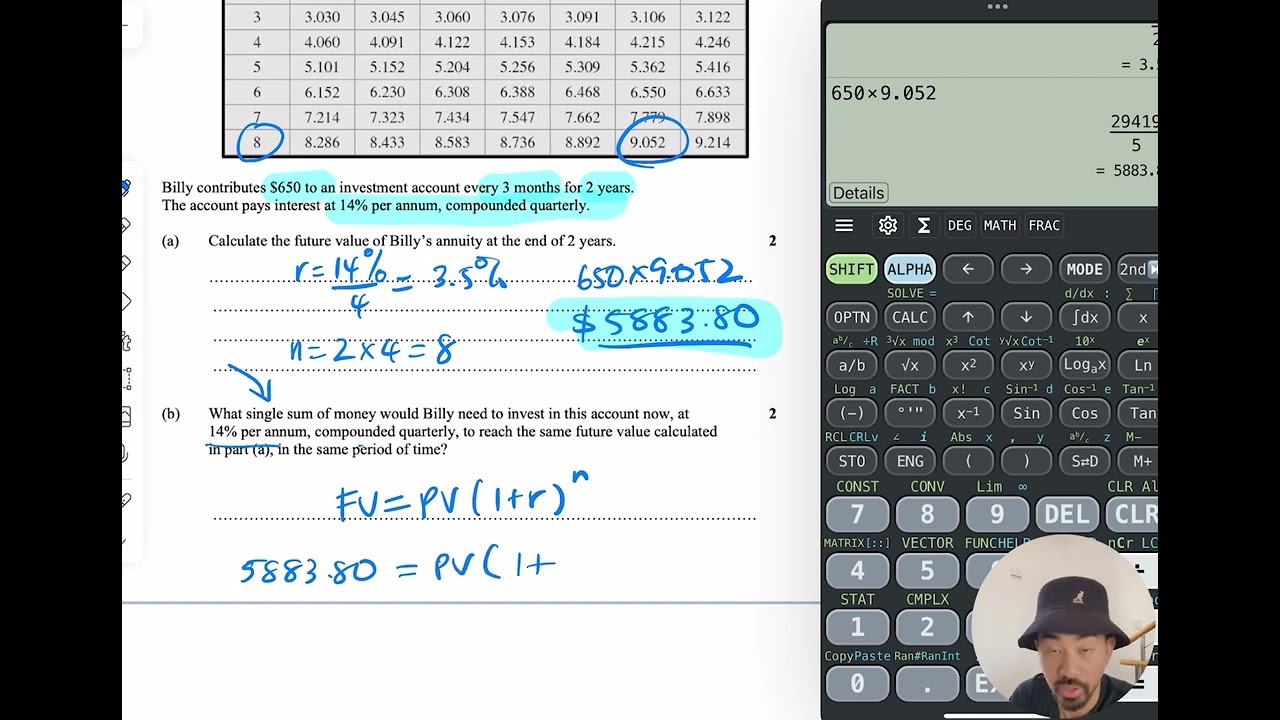 3 3.030 3.045 3.060 3.076 3.091 3.106 3.122
4 4.060 4.091 4.122 4.153 4.184 4.215 4.246
5 5.101 5.152 5.204 5.256 5.309 5.362 5.416
6 6.152 6.230 6.308 6.388 6.468 6.550 6.633
7 7.214 7.323 7.434 7.547 7.662 7.779 7.898
8 8.286 8.433 8.583 8.736 8.892 9.052 9.214
Billy contributes $650 to an investment account every 3 months for 2 years.
The account pays interest at 14% per annum, compounded quarterly.
(a) Calculate the future value of Billy's annuity at the end of 2 years. 2
r = 14%/4 = 3.5% 650×9.052
$5883.80
n = 2×4 = 8
(b) What single sum of money would Billy need to invest in this account now, at 2
14% per annum, compounded quarterly, to reach the same future value calculated
in part (a), in the same period of time?
FV = PV(1+r)^n
5883.80 = PV(1+
2
= 3.5
650×9.052
29419
5
= 5883.8
Details
DEG MATH FRAC
SHIFT ALPHA ← → MODE 2nd
SOLVE = d/dx : ∑
OPTN CALC ↑ ↓ ∫dx x
aᵇ/c ÷R ³√x mod x³ Cot y√x Cot⁻¹ 10ˣ eˣ
a/b √x x² xʸ Logₐx Ln
Log a FACT b x! c Sin⁻¹ d Cos⁻¹ e Tan⁻¹
(−) °'" x⁻¹ Sin Cos Tan
RCL CRLv ∠ i Abs x , y aᵇ/c z M−
STO ENG ( ) S⇄D M+
CONST CONV Lim ∞ CLR Al
7 8 9 DEL CLR
MATRIX[::] VECTOR FUNC HELP nCr LC
4 5
STAT CMPLX
1 2
CopyPaste Ran# RanInt
0 . =